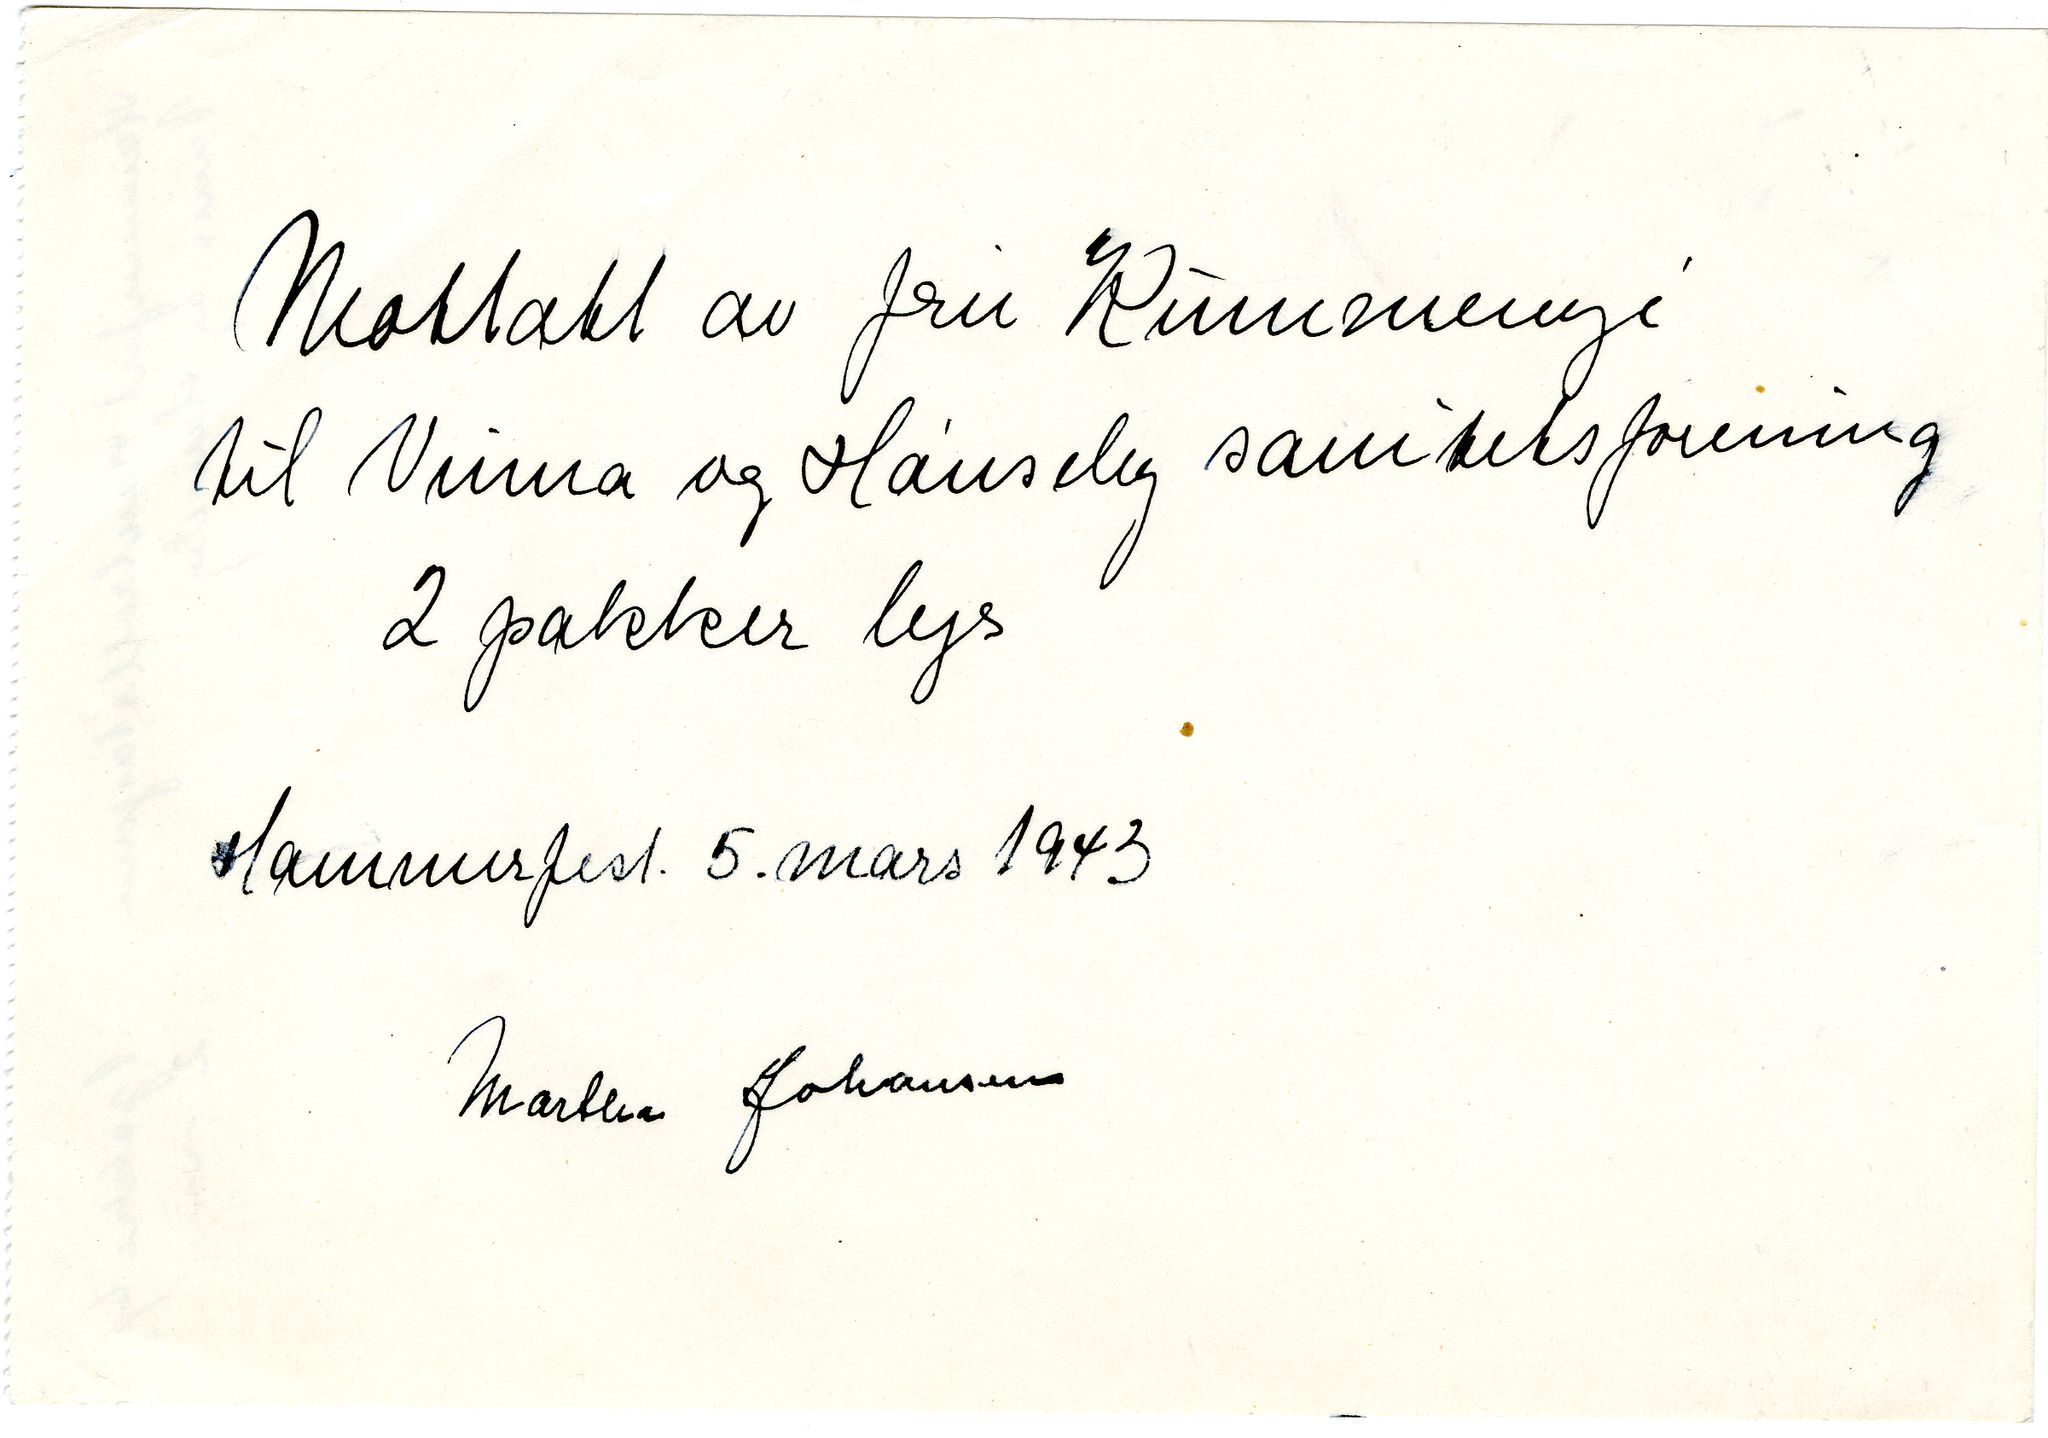 Mottatt av fru Kummeneje
til Vinna og Hånseby sanitetsforening
2 pakker lys
Hammerfest. 5. mars 1943
Martha Johansen